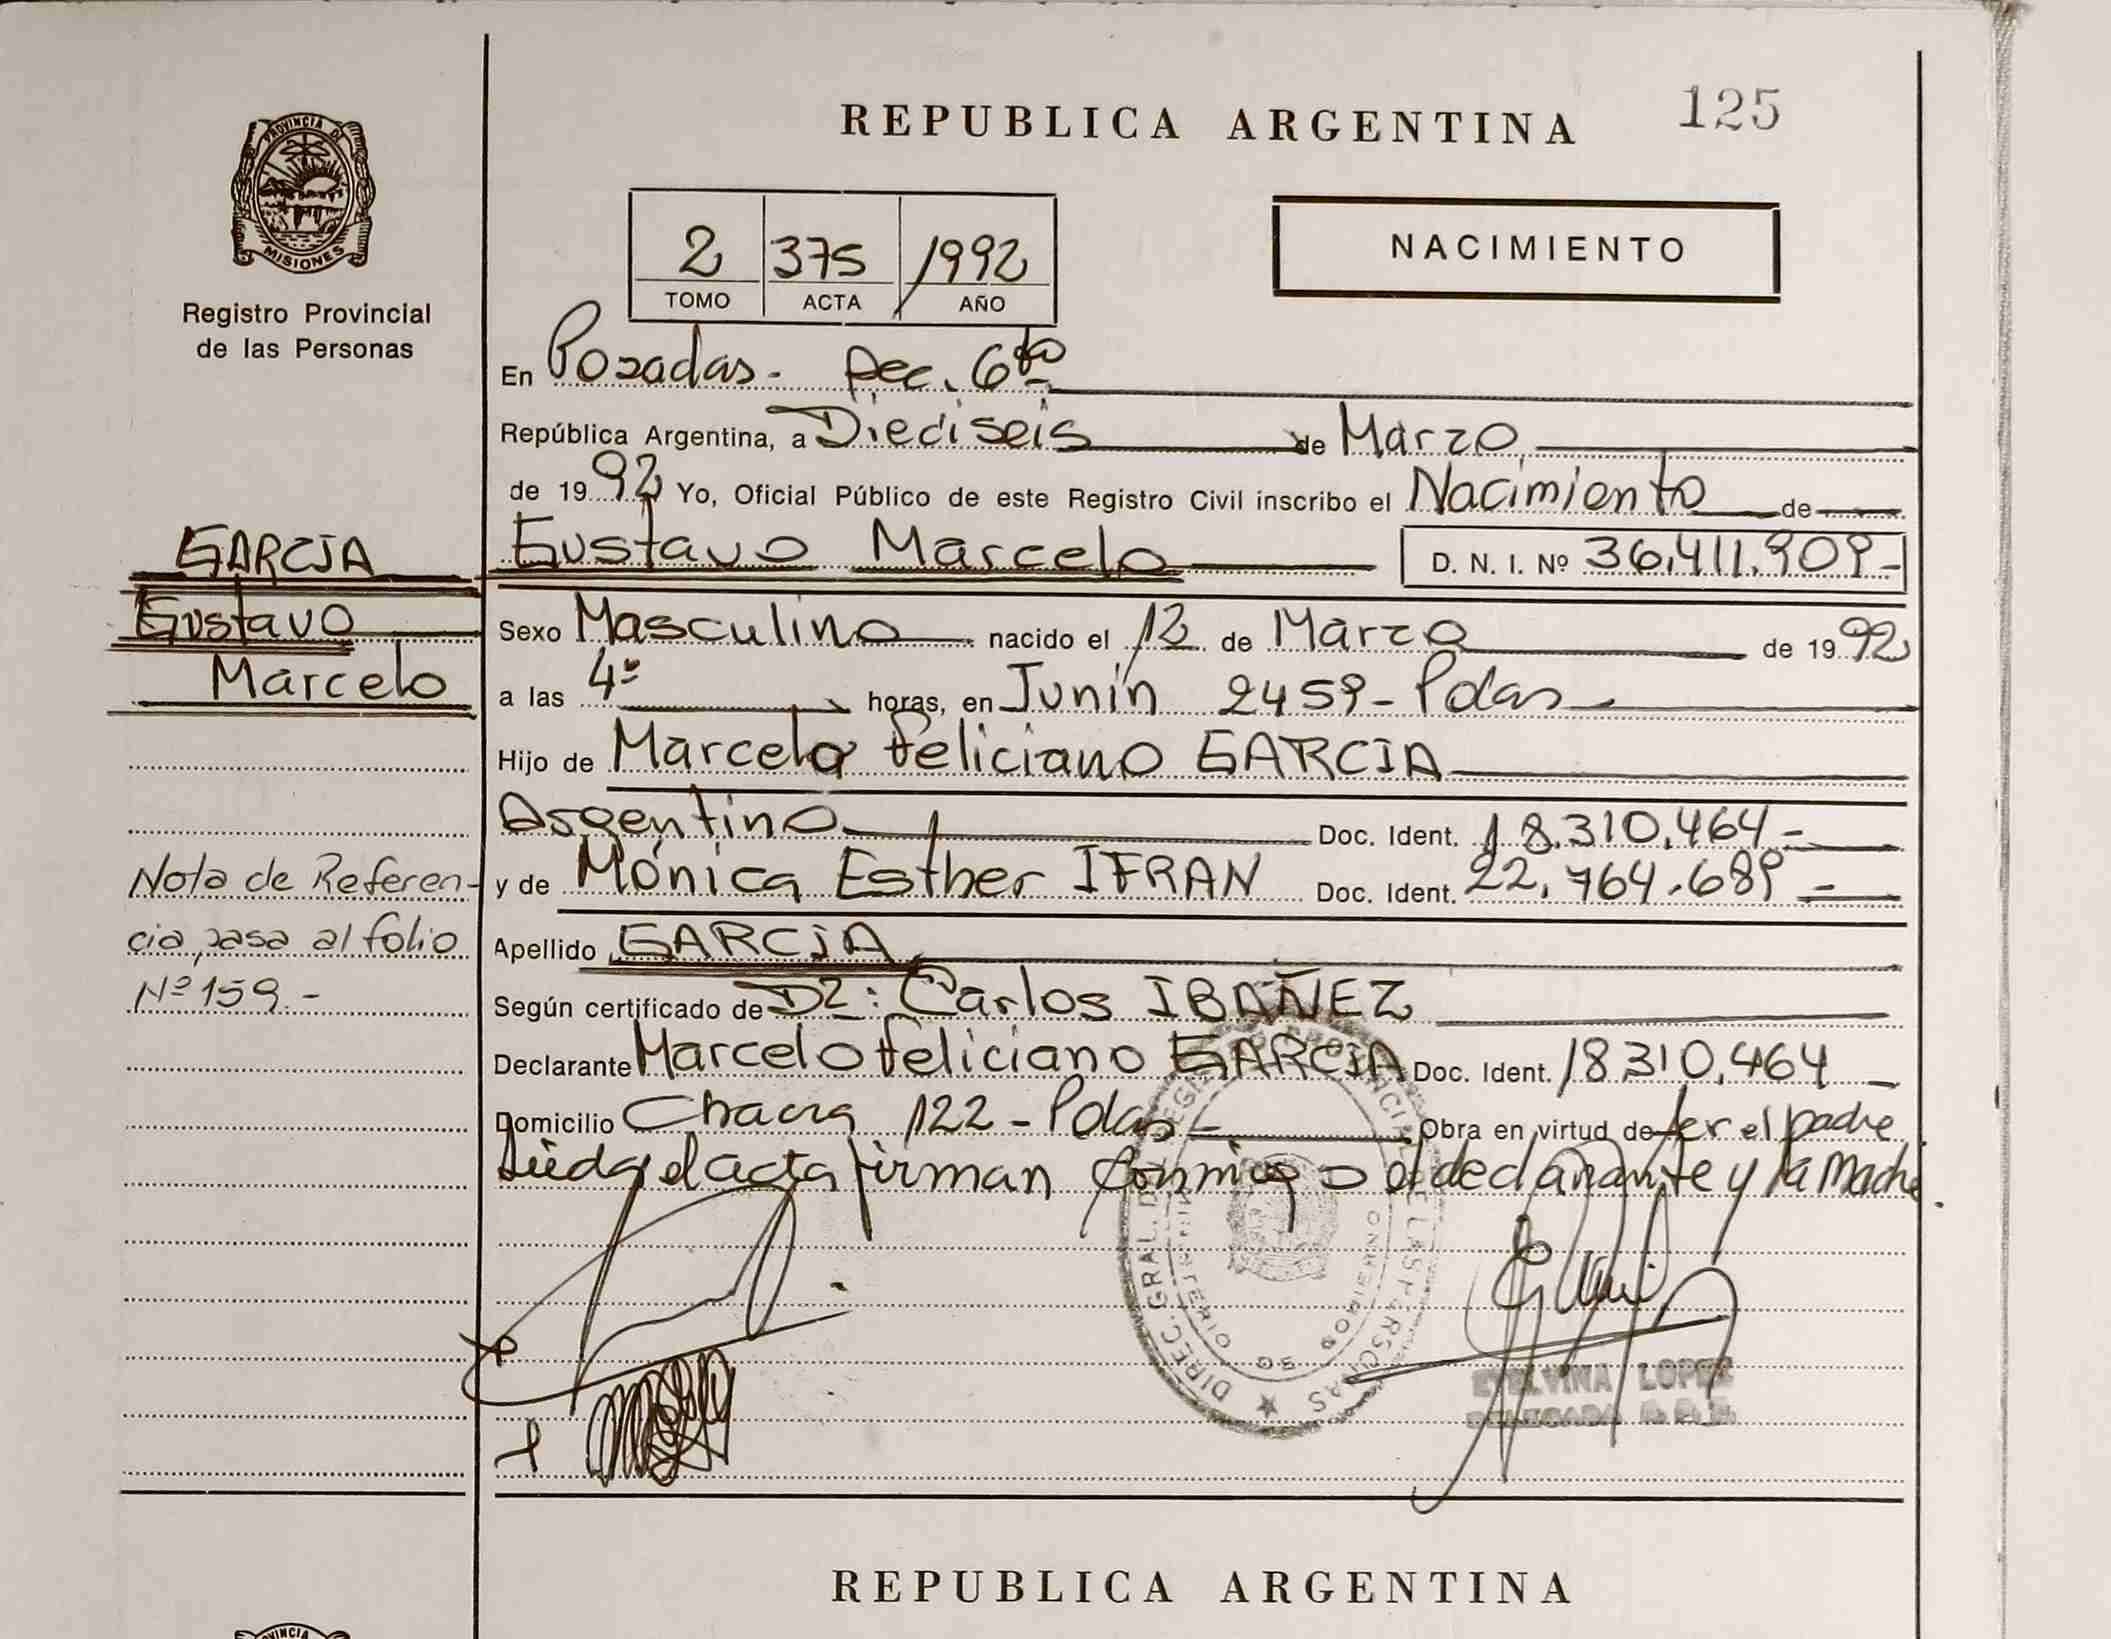 REPUBLICA ARGENTINA
125
PROVINCIA DE
MISIONES
Registro Provincial
de las Personas
2 375 1992
TOMO ACTA AÑO
NACIMIENTO
En Posadas - Sec. 6ta
República Argentina, a Dieciseis de Marzo
de 1992 Yo, Oficial Público de este Registro Civil inscribo el Nacimiento de
Gustavo Marcelo D. N. I. Nº 36.411.909-
GARCIA
Gustavo
Marcelo
Sexo Masculino nacido el 12 de Marzo de 1992
a las 4º horas, en Junín 2459 - Pdas
Hijo de Marcelo Feliciano GARCIA
Argentino Doc. Ident. 18.310.464-
y de Mónica Esther IFRAN Doc. Ident. 22.764.689-
Apellido GARCIA
Según certificado de Dr: Carlos IBAÑEZ
Declarante Marcelo Feliciano GARCIA Doc. Ident. 18310.464
Domicilio Chacra 122 - Pdas - Obra en virtud de ser el padre
Leída el acta firman conmigo el declarante y la Madre.
Nota de Referen-
cia, pasa al folio
Nº 159.-
DIREC. GRAL. DE LAS PERSONAS
MINISTERIO GOBIERNO
LOPEZ
DELEGADA
REPUBLICA ARGENTINA